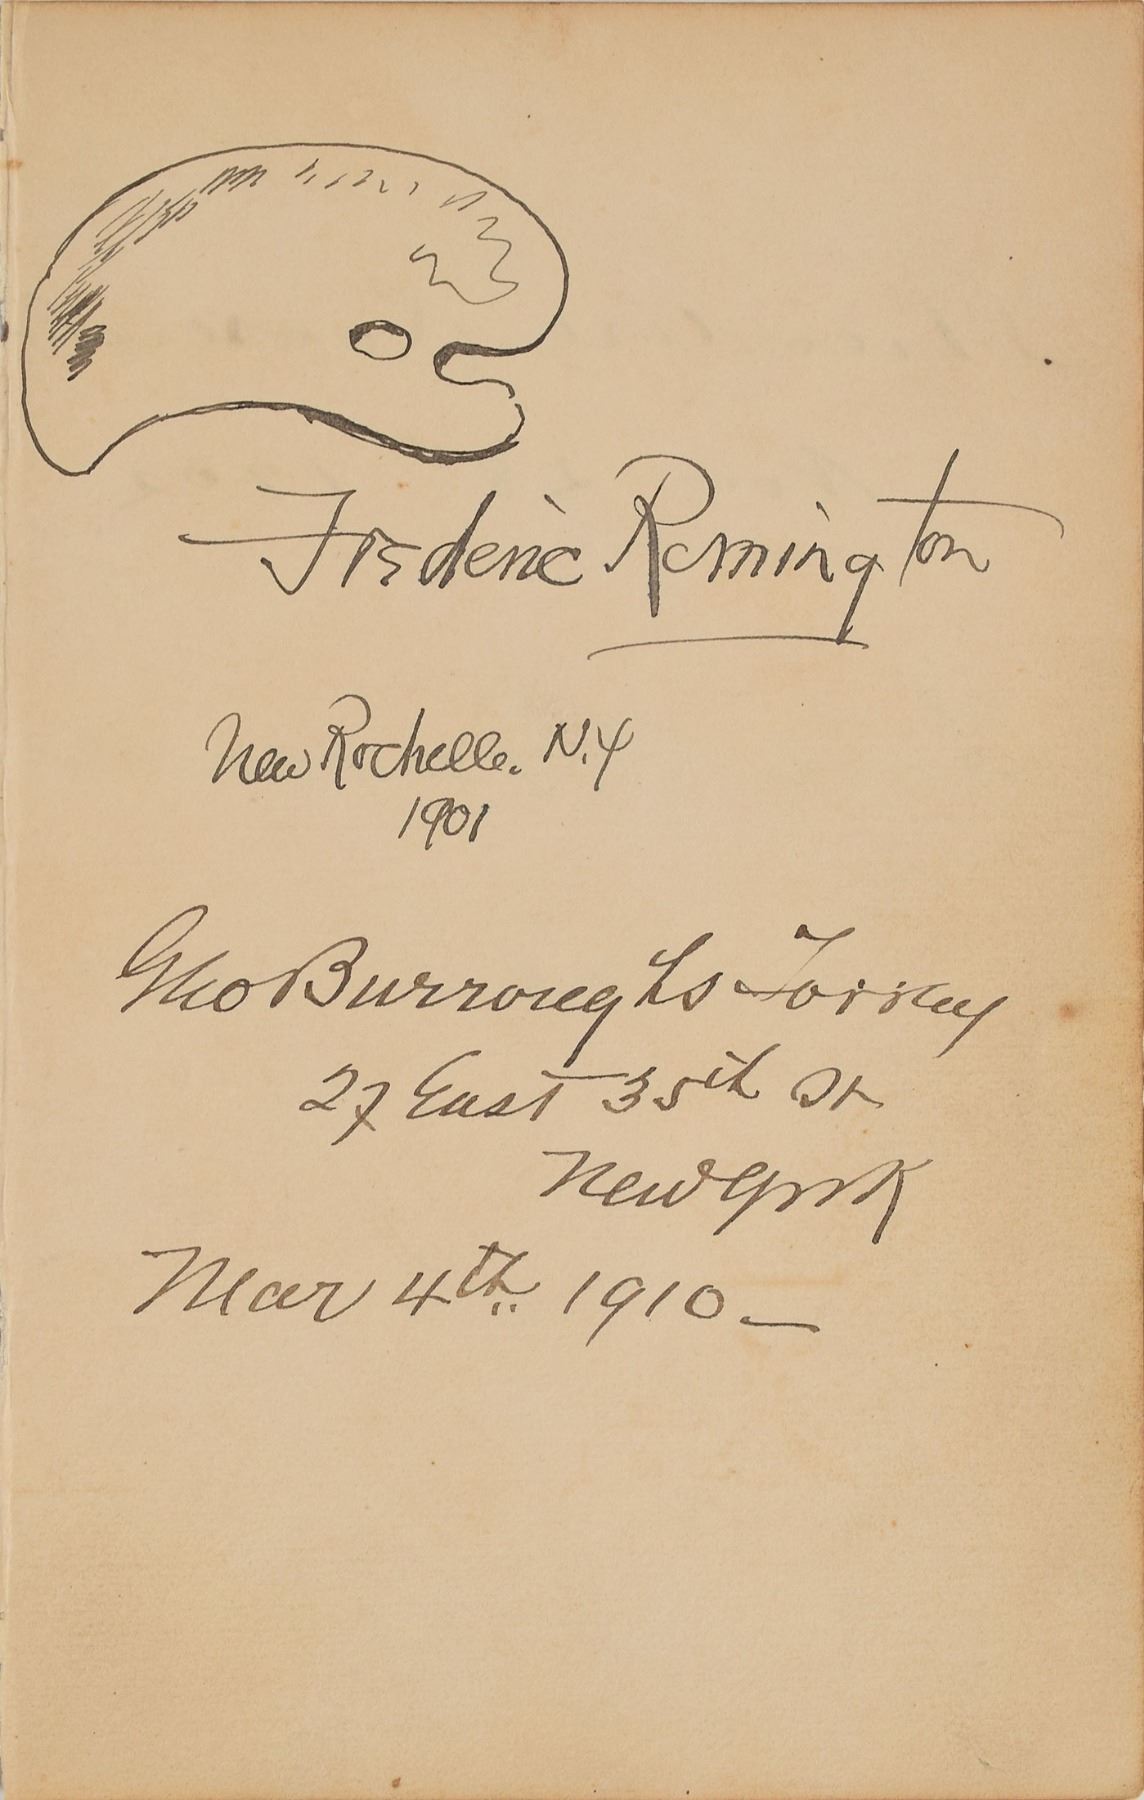 Frederic Remington
New Rochelle. N.Y
1901
Geo Burroughs Torrey
27 East 35th St
New York
Mar 4th. 1910_